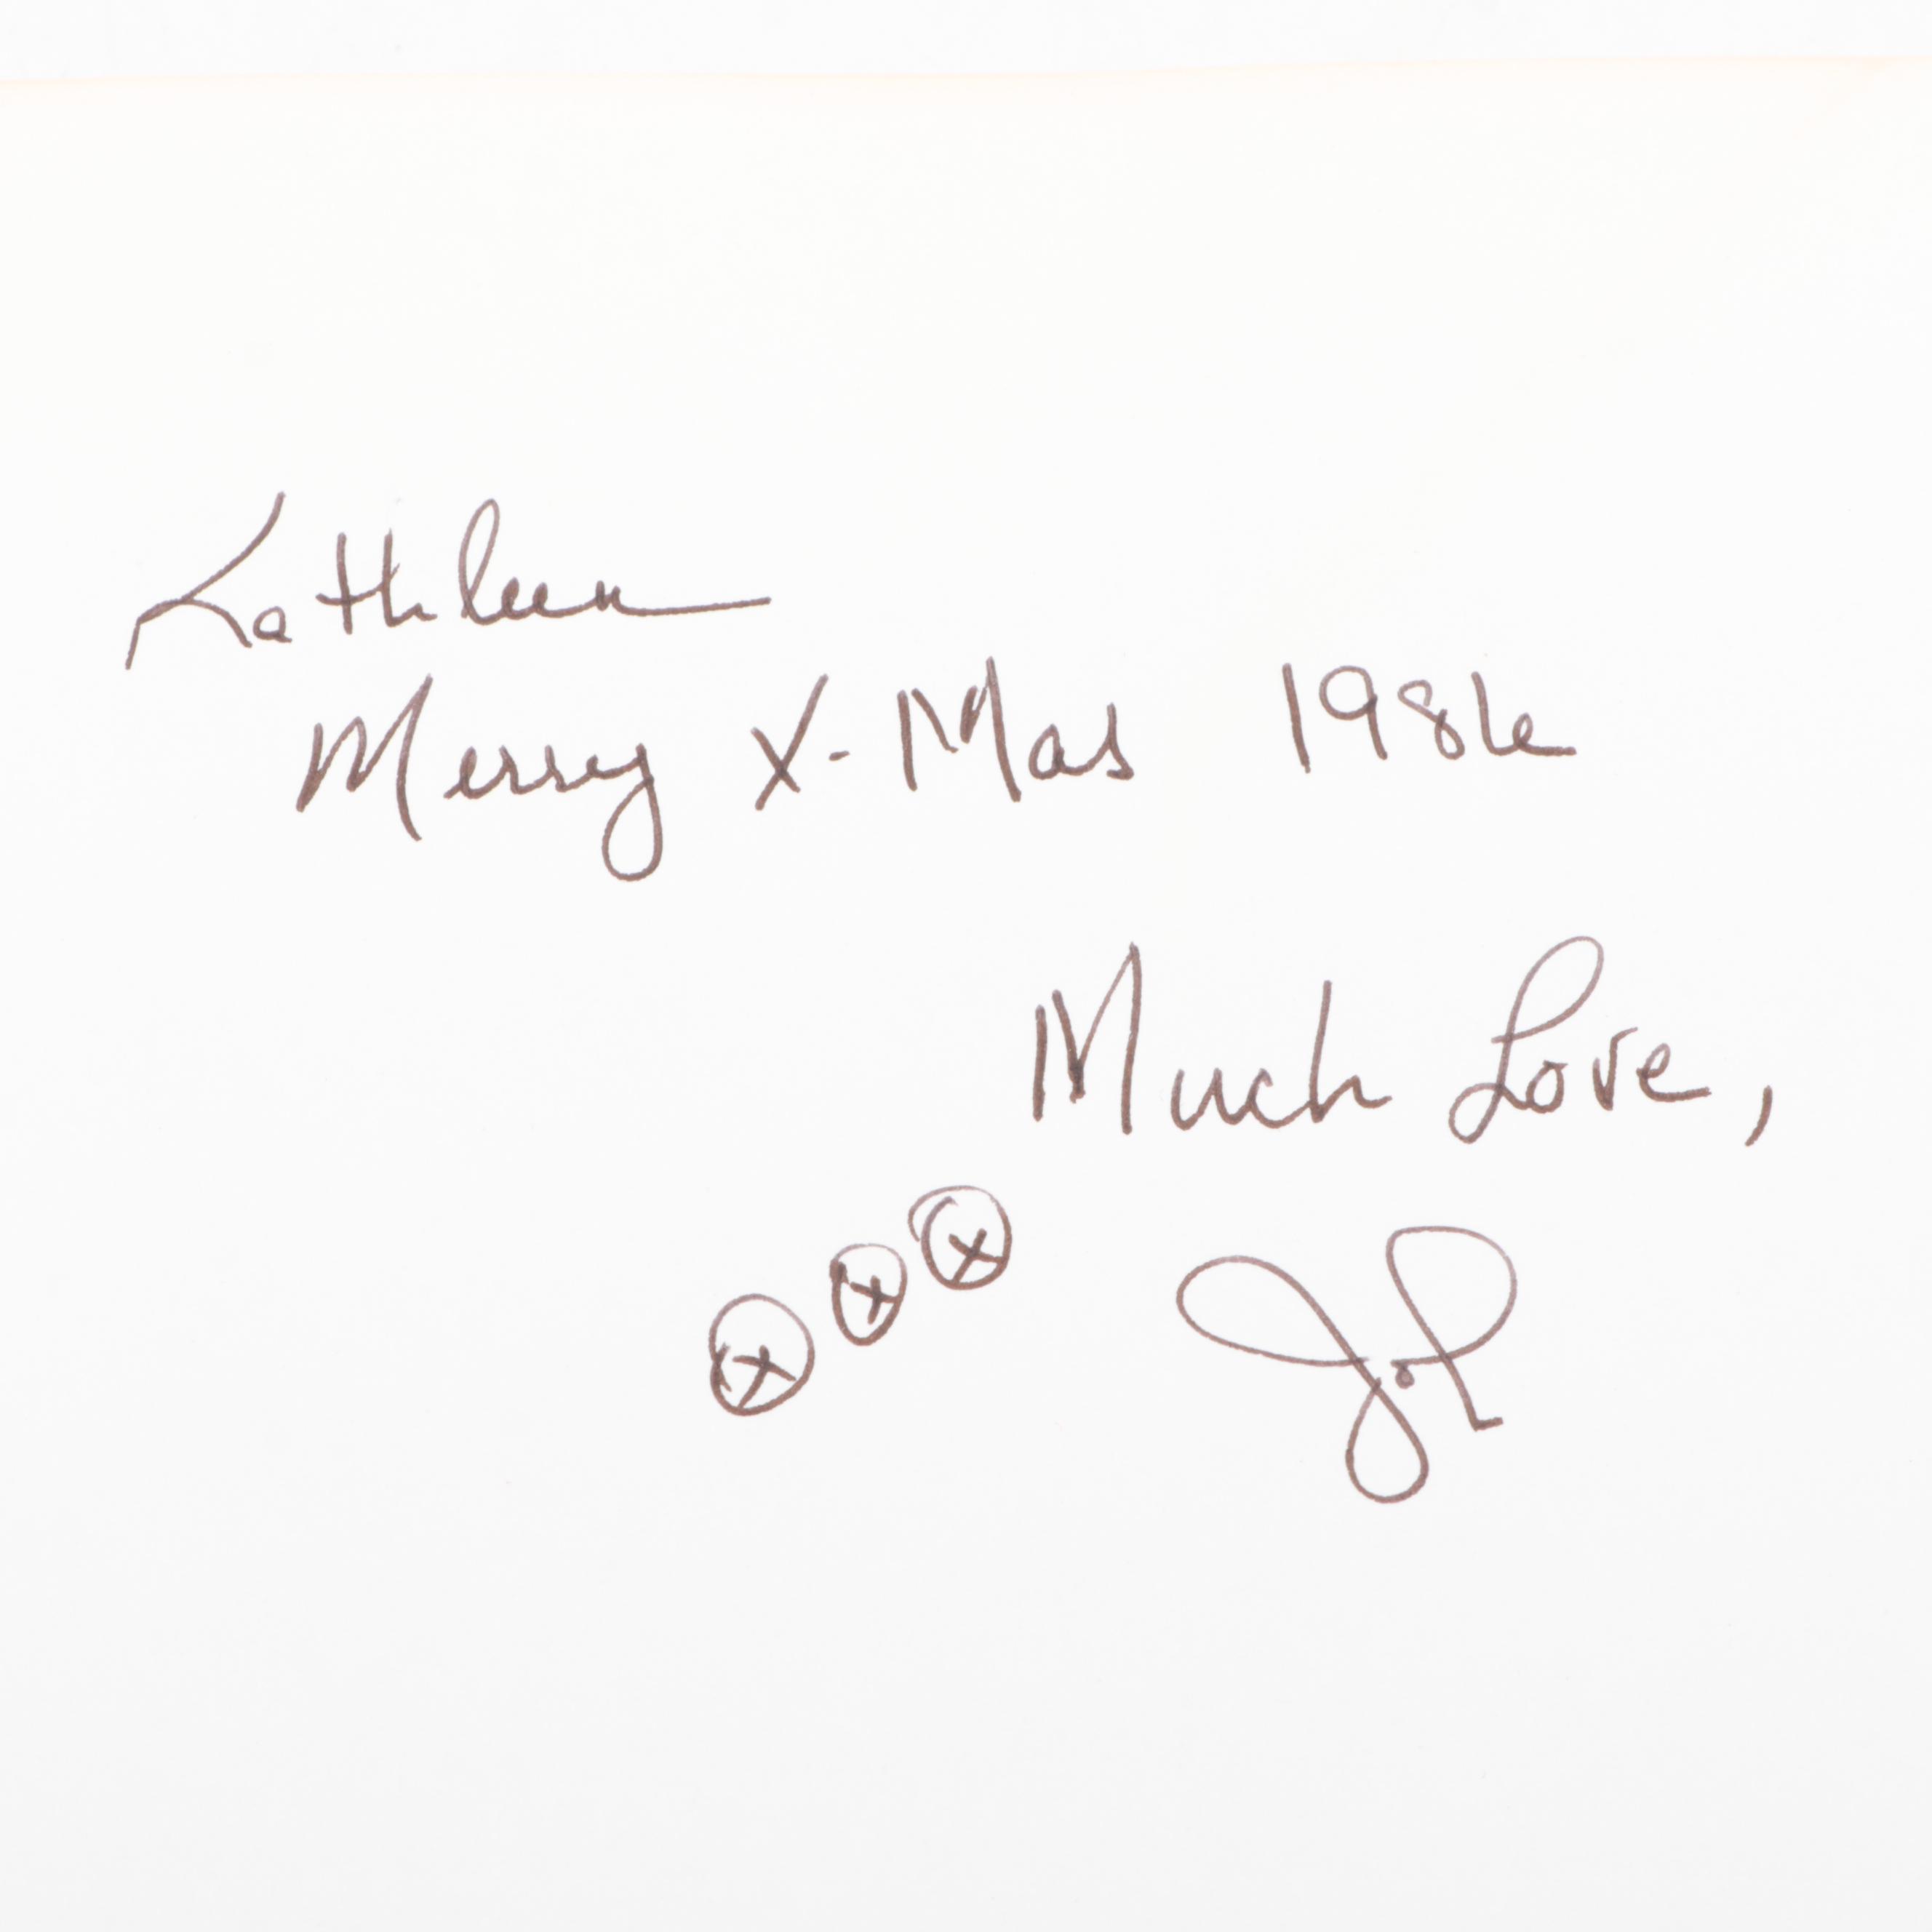 Kathleen
Merry X-Mas 1986
Much Love,